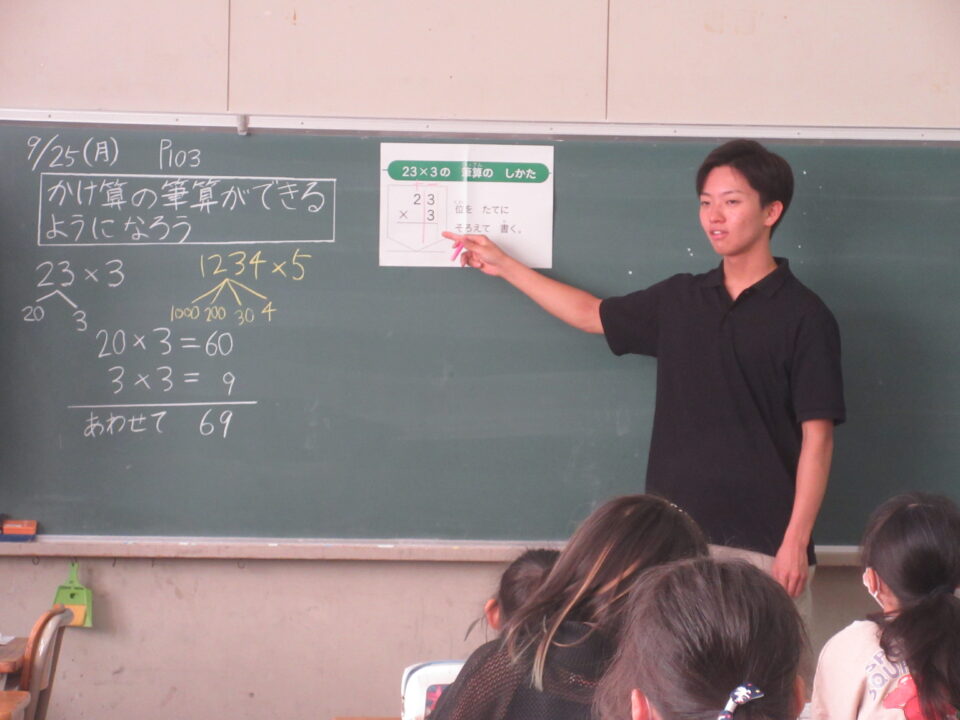 9/25(月) P103
かけ算の筆算ができる
ようになろう
23×3
20 3
1234×5
1000 200 30 4
20×3=60
3×3= 9
あわせて 69
23×3の 筆算の しかた
23
× 3
位を たてに
そろえて 書く。